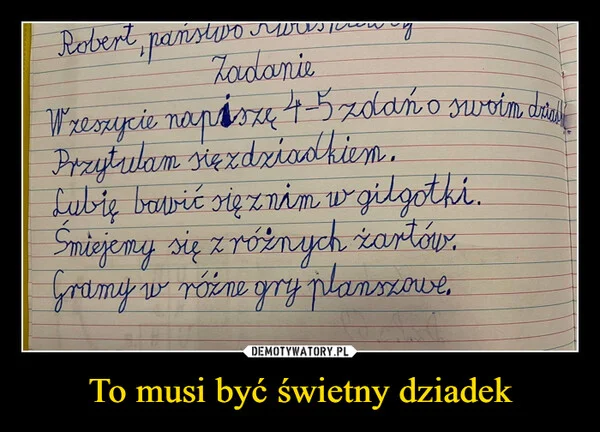 Robert, państwo
Zadanie
W zeszycie napiszę 4-5 zdań o swoim
Przytulam się z dziadkiem.
Lubię bawić się z nim w gilgotki.
Śmiejemy się z różnych żartów.
Gramy w różne gry planszowe.
DEMOTYWATORY.PL
To musi być świetny dziadek